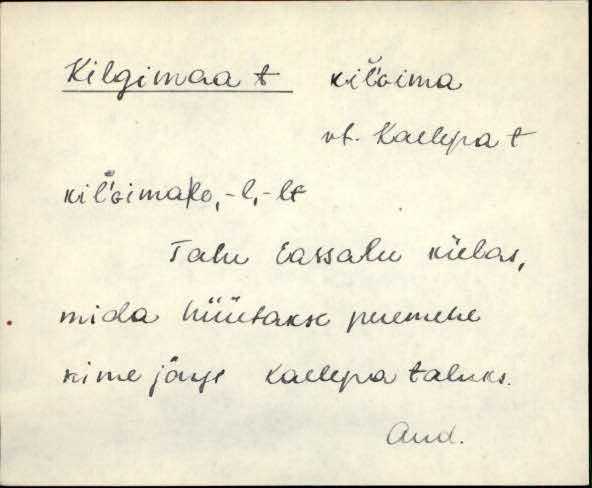 Kilgimaa t kil'ɢima
vt. Kaclepa t
kil'ɢima|ko, -l, -lt
Talu Lassalu külas,
mida hüütakse peremehe
nime järge Kallepa taluks.
And.